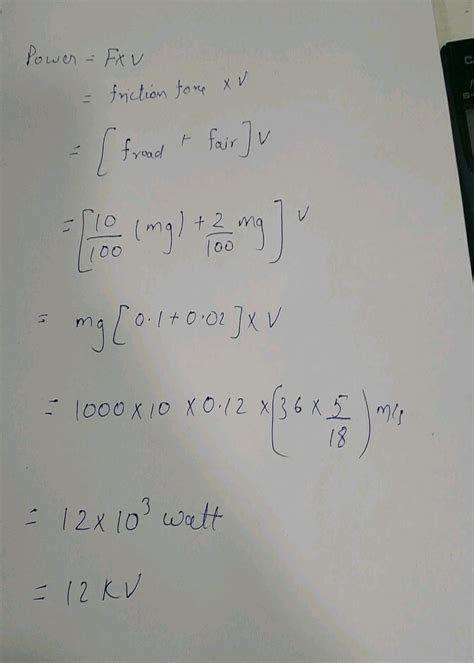 Power = F×V
= friction force × V
= [ froad + fair ] V
= [ 10/100 (mg) + 2/100 mg ] V
= mg [ 0.1 + 0.02 ] × V
= 1000 × 10 × 0.12 × ( 36 × 5/18 ) m/s
= 12 × 10³ watt
= 12 KV